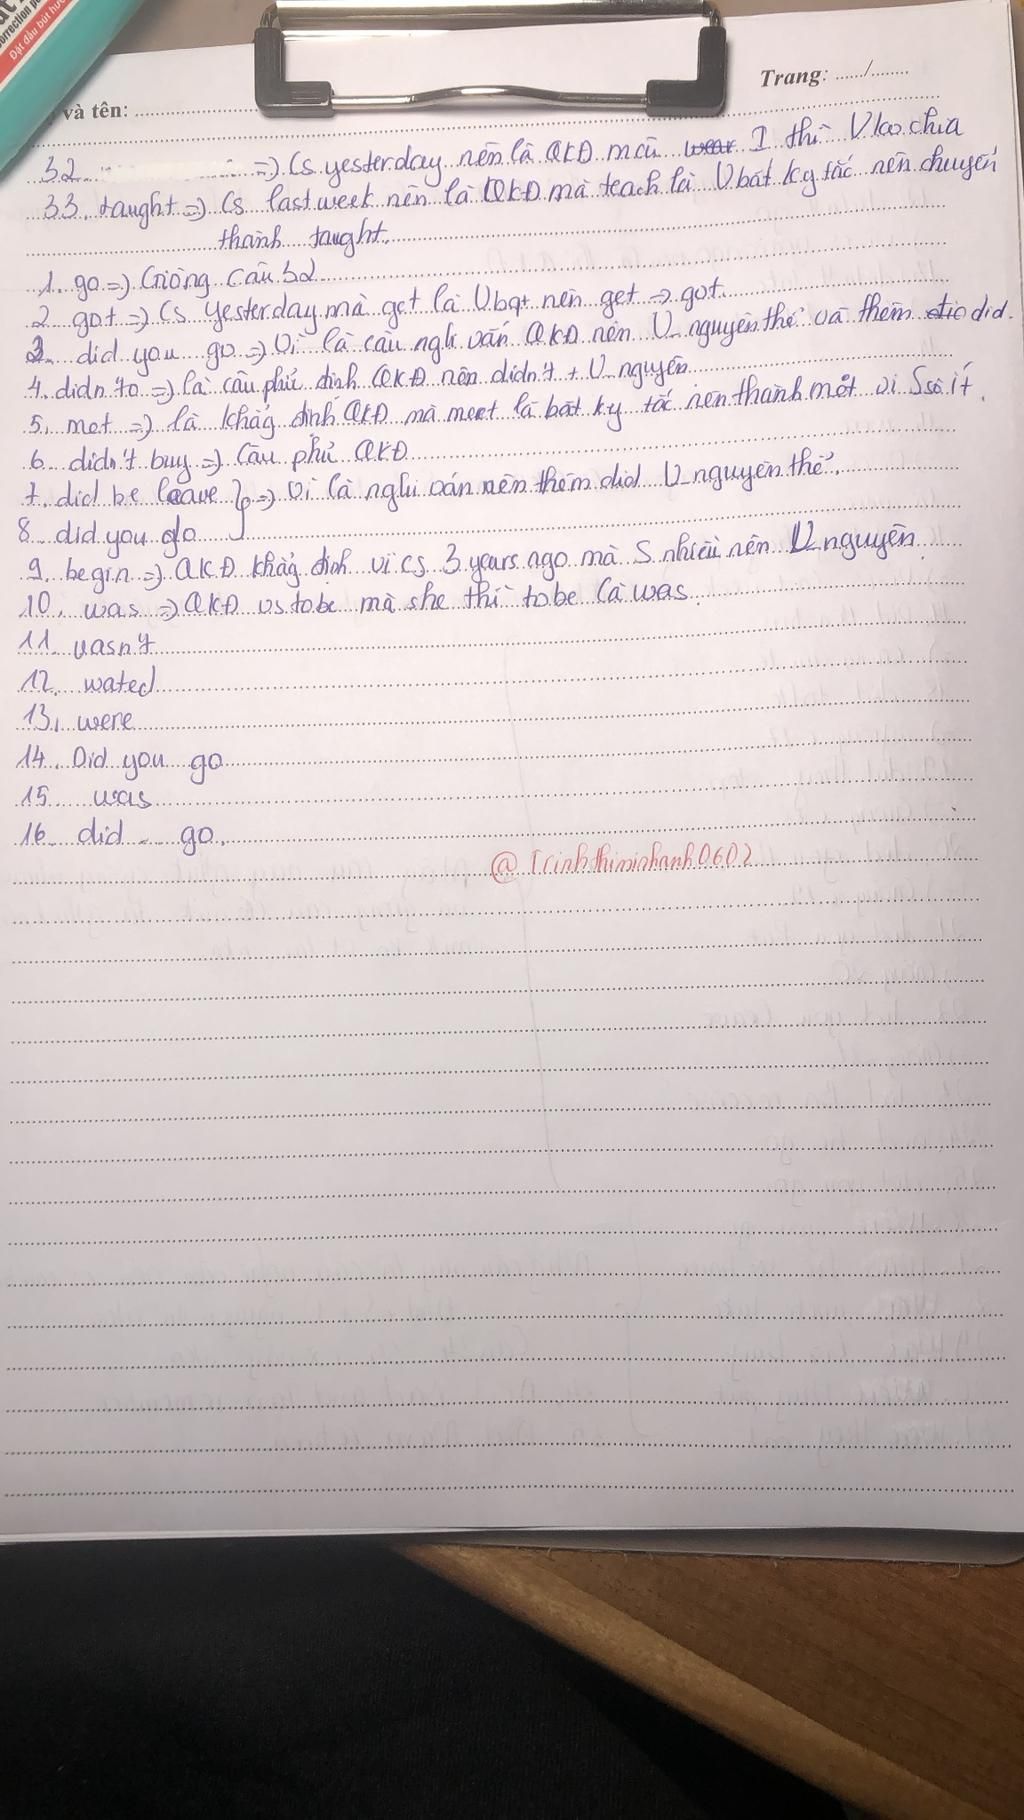 correction pe
Đặt đầu bút hướ
và tên:
Trang: ....../........
32. => Cs yesterday nên là QKĐ mà I thì V ko chia
33. taught => Cs last week nên là QKĐ mà teach là V bất ky tắc nên chuyển
thành taught.
1. go => Giống câu 32
2. got => Cs yesterday mà get là Vbqt nên get => got.
3. did you go => Vì là câu nghi vấn QKĐ nên V_nguyên thể và thêm did.
4. didn't do => là câu phủ định QKĐ nên didn't + V_nguyên
5. met => là khẳg định QKĐ mà meet là bất ky tắc nên thành mét vì S số ít.
6. didn't buy => Câu phủ QKĐ
7. did be leave } => Vì là nghi vấn nên thêm did V_nguyên thể.
8. did you do
9. begin => QKĐ khẳg định vì cs 3 years ago mà S nhiều nên V nguyên
10. was => QKĐ vs tobe mà she thì tobe là was.
11. wasn't
12. wated
13. were
14. Did you go
15. was
16. did ... go.
@Trinhthiminhanh0602